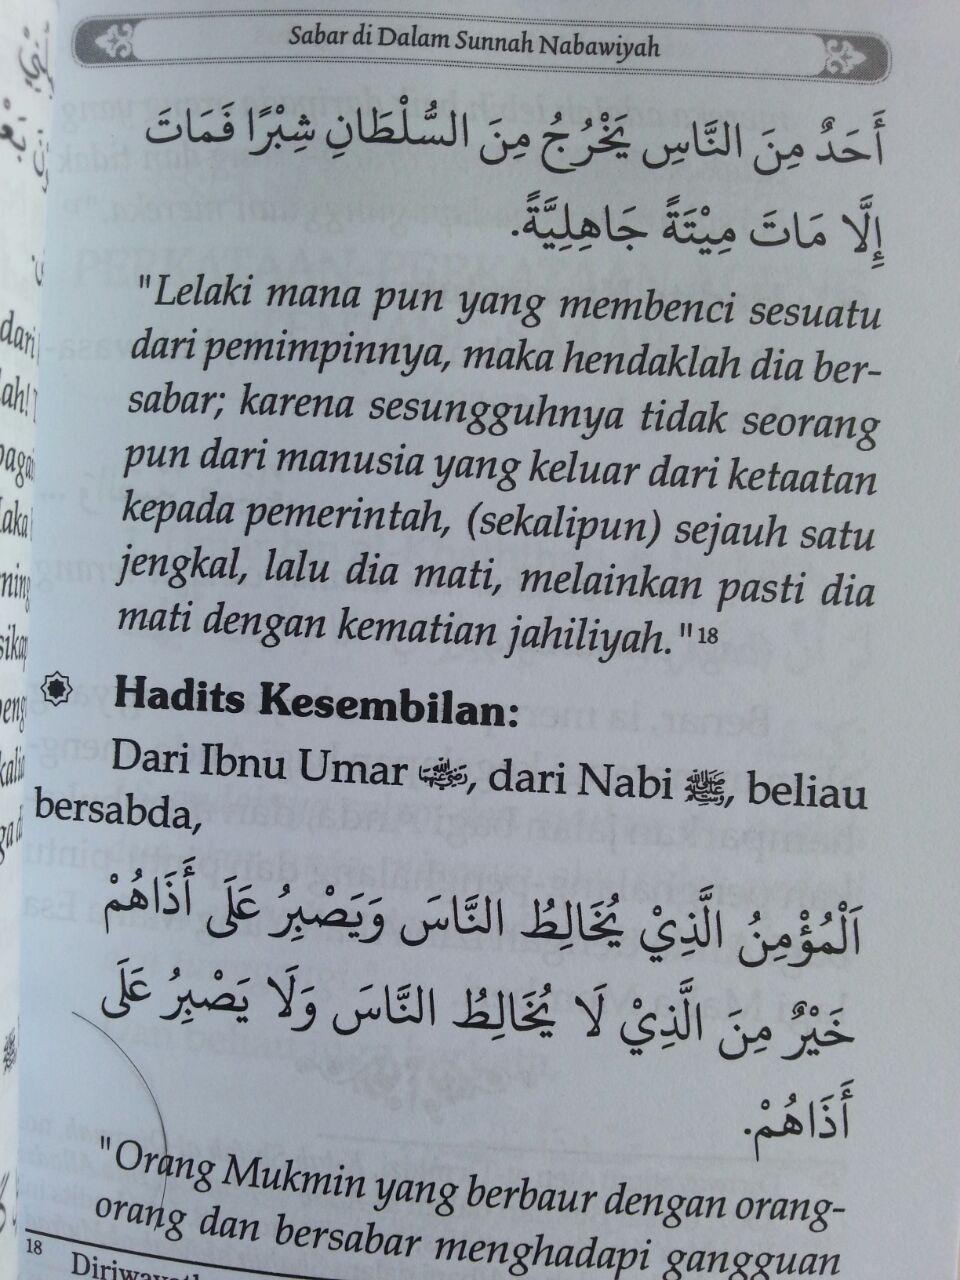 Sabar di Dalam Sunnah Nabawiyah
أَحَدٌ مِنَ النَّاسِ يَخْرُجُ مِنَ السُّلْطَانِ شِبْرًا فَمَاتَ
إِلَّا مَاتَ مِيْتَةً جَاهِلِيَّةً.
"Lelaki mana pun yang membenci sesuatu
dari pemimpinnya, maka hendaklah dia ber-
sabar; karena sesungguhnya tidak seorang
pun dari manusia yang keluar dari ketaatan
kepada pemerintah, (sekalipun) sejauh satu
jengkal, lalu dia mati, melainkan pasti dia
mati dengan kematian jahiliyah."18
Hadits Kesembilan:
Dari Ibnu Umar, dari Nabi ﷺ, beliau
bersabda,
اَلْمُؤْمِنُ الَّذِيْ يُخَالِطُ النَّاسَ وَيَصْبِرُ عَلَى أَذَاهُمْ
خَيْرٌ مِنَ الَّذِيْ لَا يُخَالِطُ النَّاسَ وَلَا يَصْبِرُ عَلَى
أَذَاهُمْ.
"Orang Mukmin yang berbaur dengan orang-
orang dan bersabar menghadapi gangguan
18